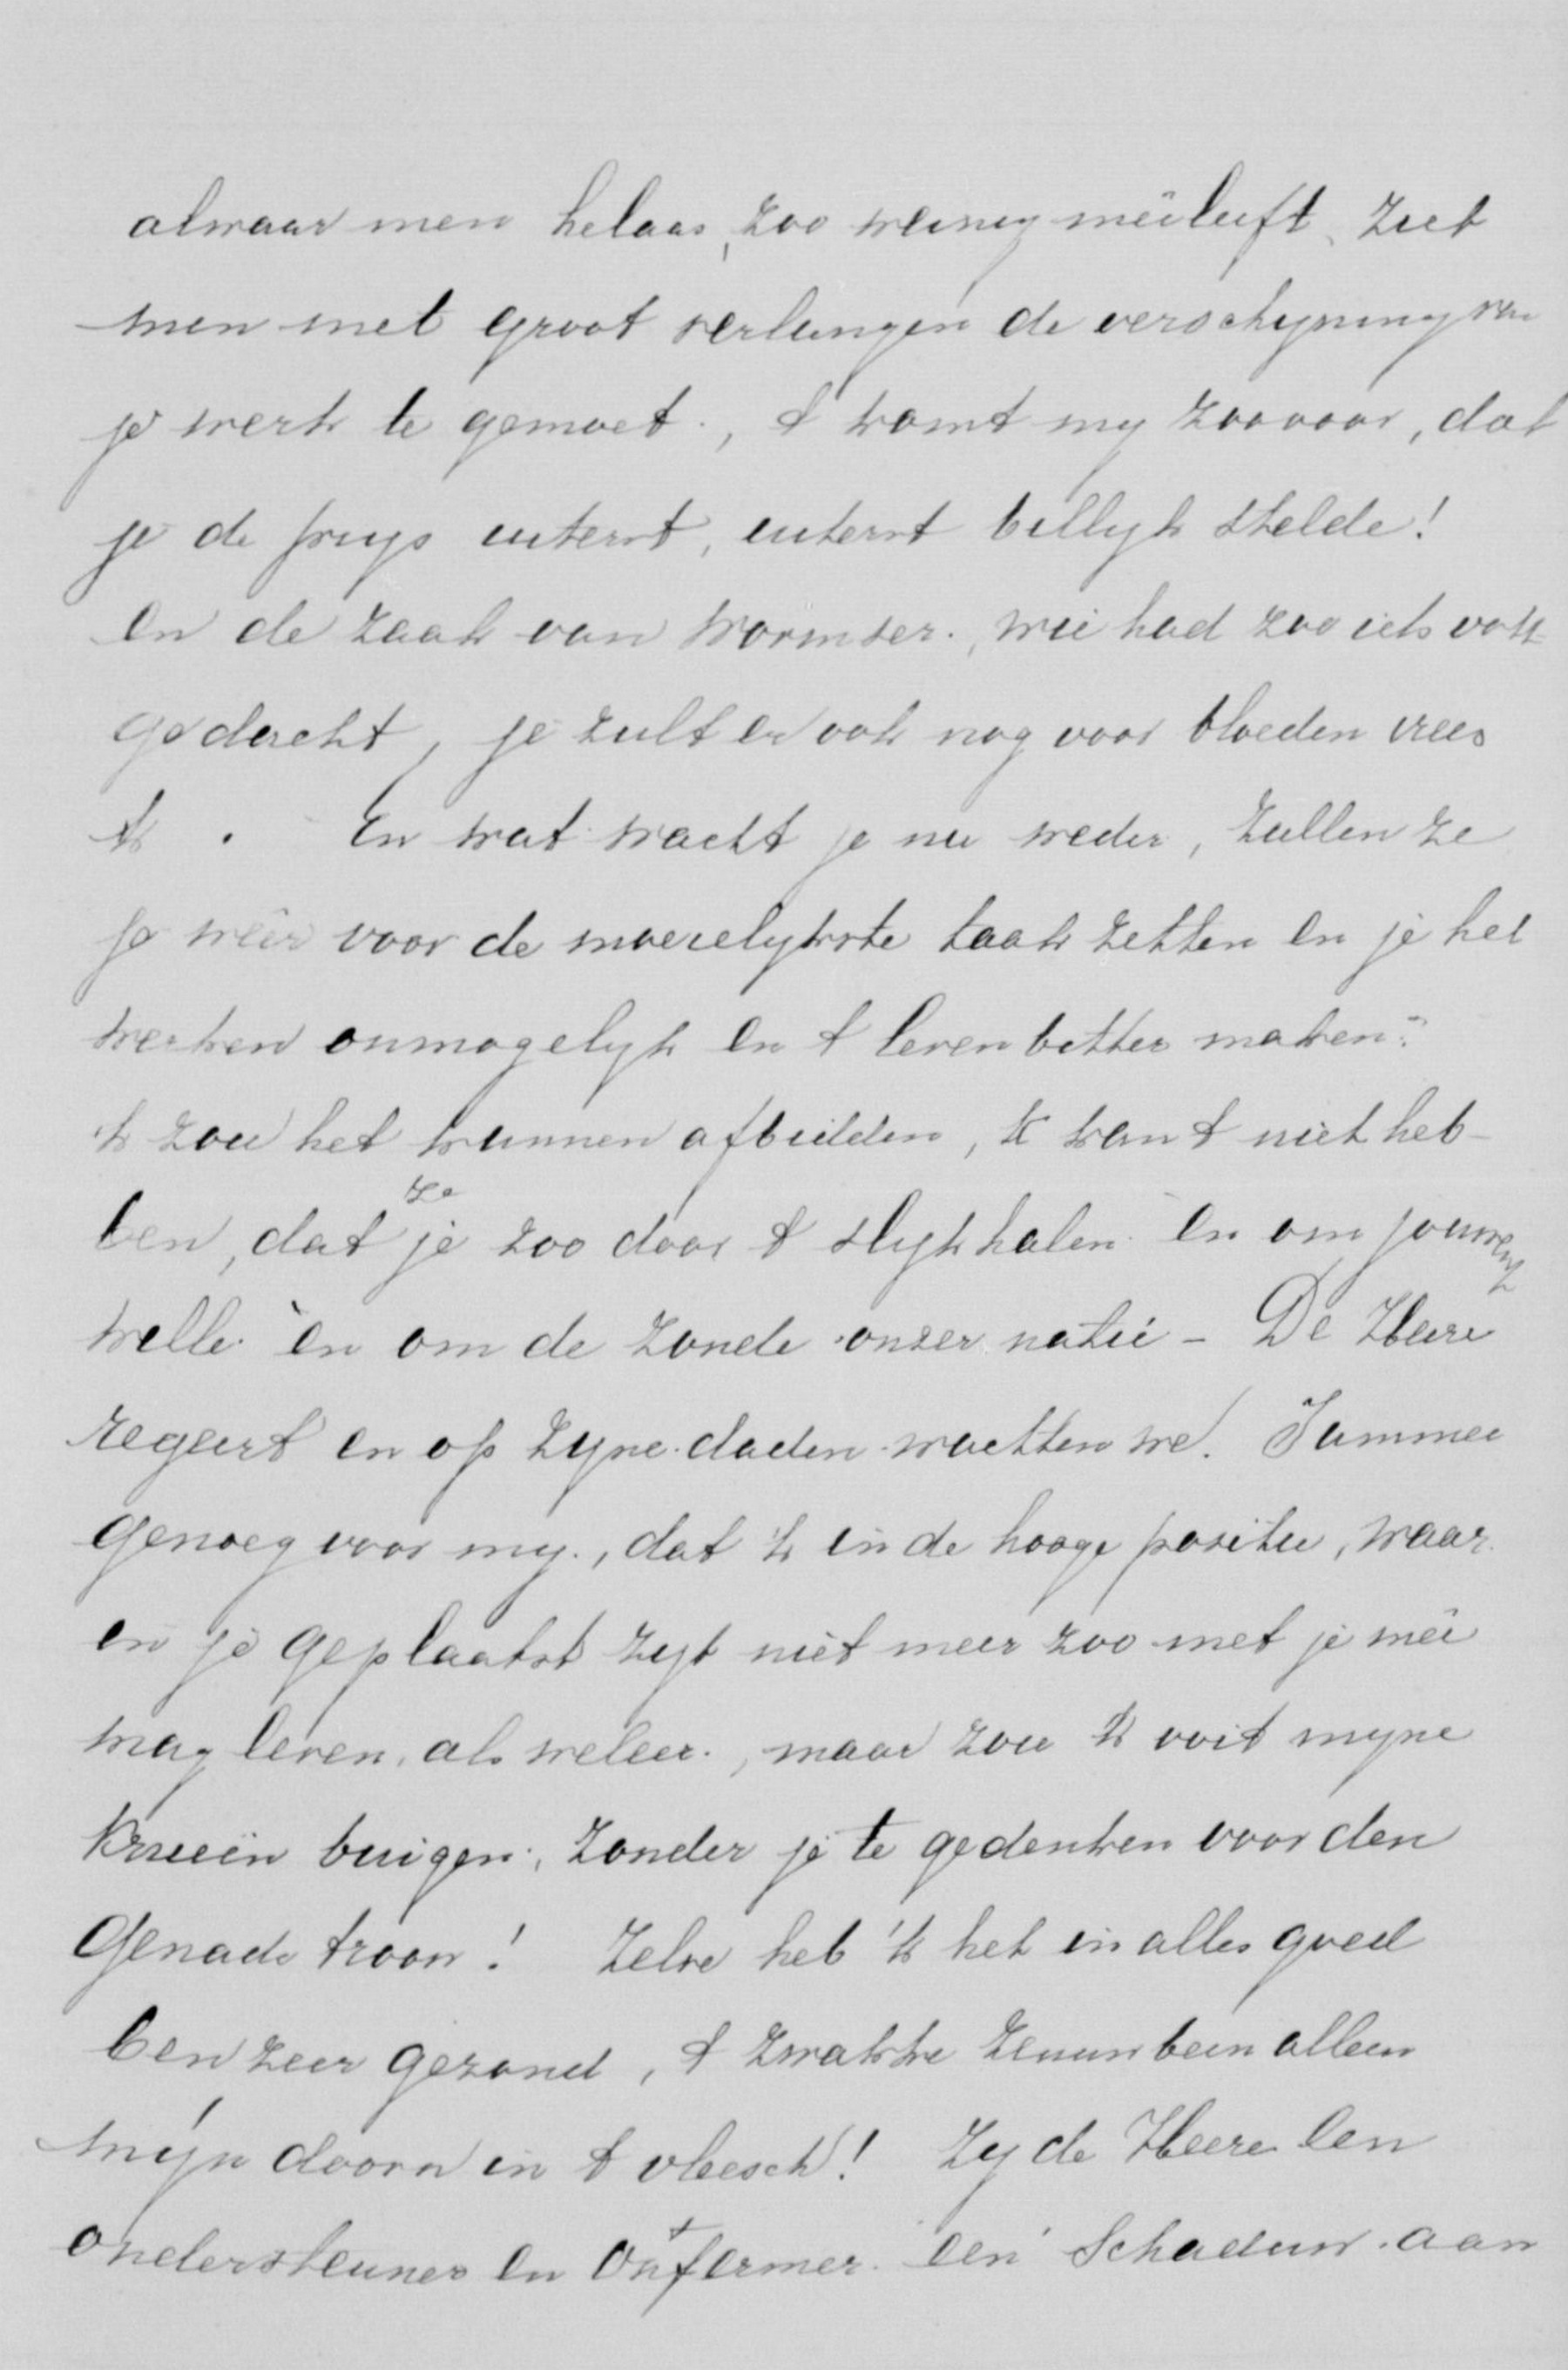 alwaar men helaas, zoo weinig meêleeft, ziet
men met groot verlangen de verschyning van
je werk te gemoet., 't komt my zoo voor, dat
je de prys uiterst, uiterst billyk stelde!
En de zaak van Wormser., wie had zoo iets ooit
gedacht, je zult er ook nog voor bloeden vrees
'k. En wat wacht je nu weder, zullen ze
je weêr voor de moeielykste taak zetten en je het
werken onmogelyk en 't leven bitter maken?
'k zou het kunnen afbidden, 'k kan 't niet heb-
ben, dat ze je zoo door 't slyk halen. En om jouwent
wille èn om de zonde onzer natie - De Heere
regeert en op zyne daden wachten we. Jammer
genoeg voor my., dat 'k in de hooge positie, waar
in je geplaatst zyt niet meer zoo met je meê
mag leven, als weleer., maar zou 'k ooit myne
knieën buigen, zonder je te gedenken voor den
Genade troon! Zelve heb 'k het in alles goed
ben zeer gezond, 't zwakke zenuwbeen alleen
mijn doorn in 't vleesch! Zy de Heere Uw
ondersteuner en Ontfermer. een Schaduw aan